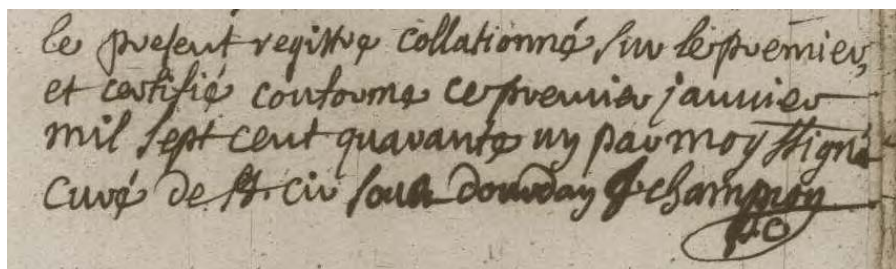 le present registre collationné sur le premier,
et certifié conforme ce premier janvier
mil sept cent quarante un par moy ssigné
curé de St. Cir sous dourdan champion